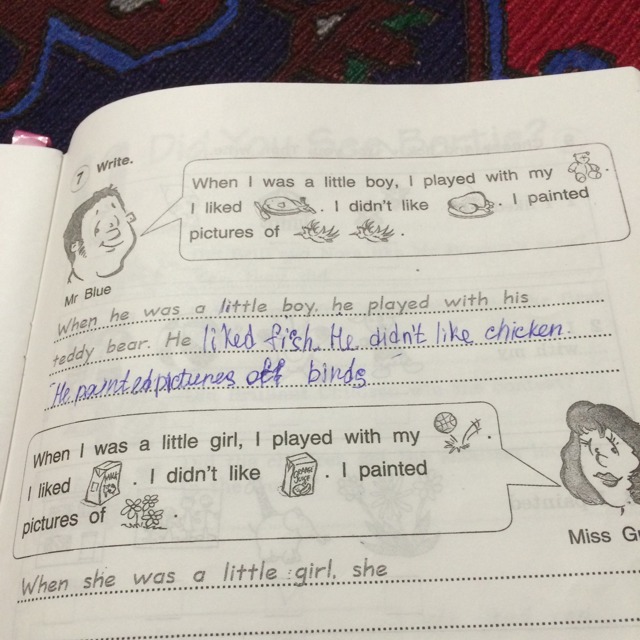 7 Write.
When I was a little boy, I played with my .
I liked . I didn't like . I painted
pictures of .
Mr Blue
When he was a little boy, he played with his
teddy bear. He liked fish. He didn't like chicken.
He painted pictures off birds
When I was a little girl, I played with my .
I liked . I didn't like . I painted
pictures of .
MILK
ORANGE JUICE
Miss Gr
When she was a little girl, she